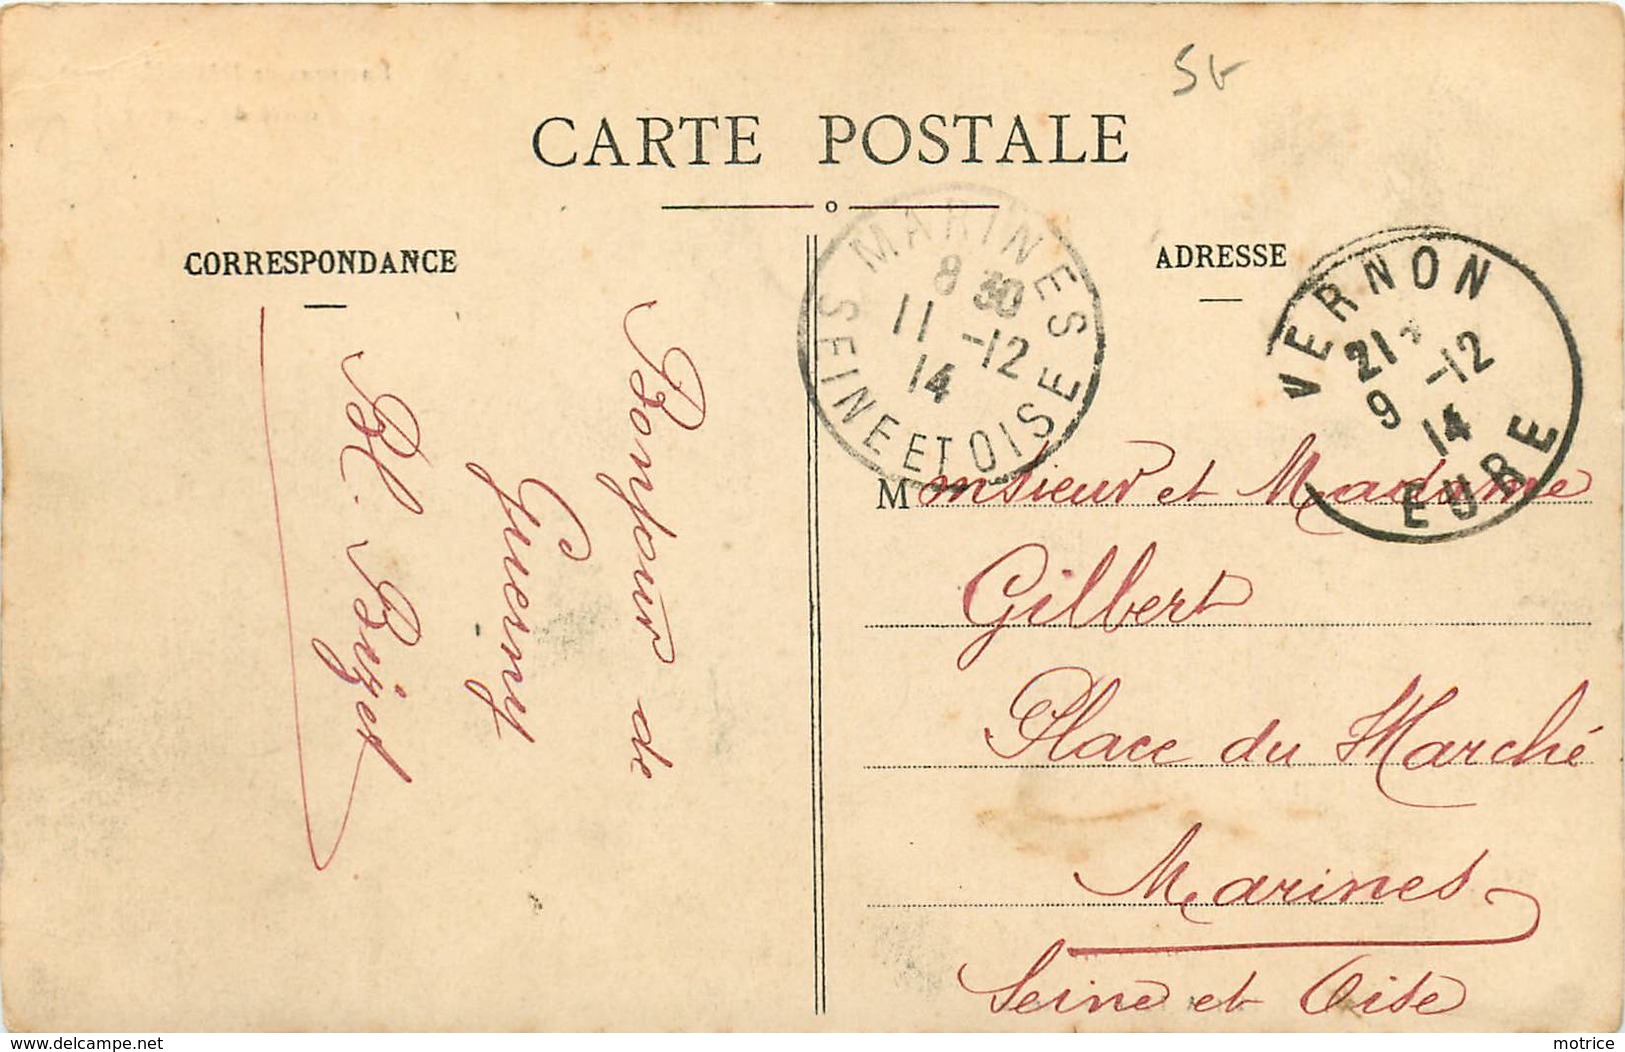 CARTE POSTALE
CORRESPONDANCE
ADRESSE
MARINES
8 30
11 -12
14
SEINE ET OISE
VERNON
21
9 -12
14
EURE
Bonjour de
Guerny
Bl. Bizet
Monsieur et Madame
Gilbert
Place du Marché
Marines
Seine et Oise
delcampe.net
motrice